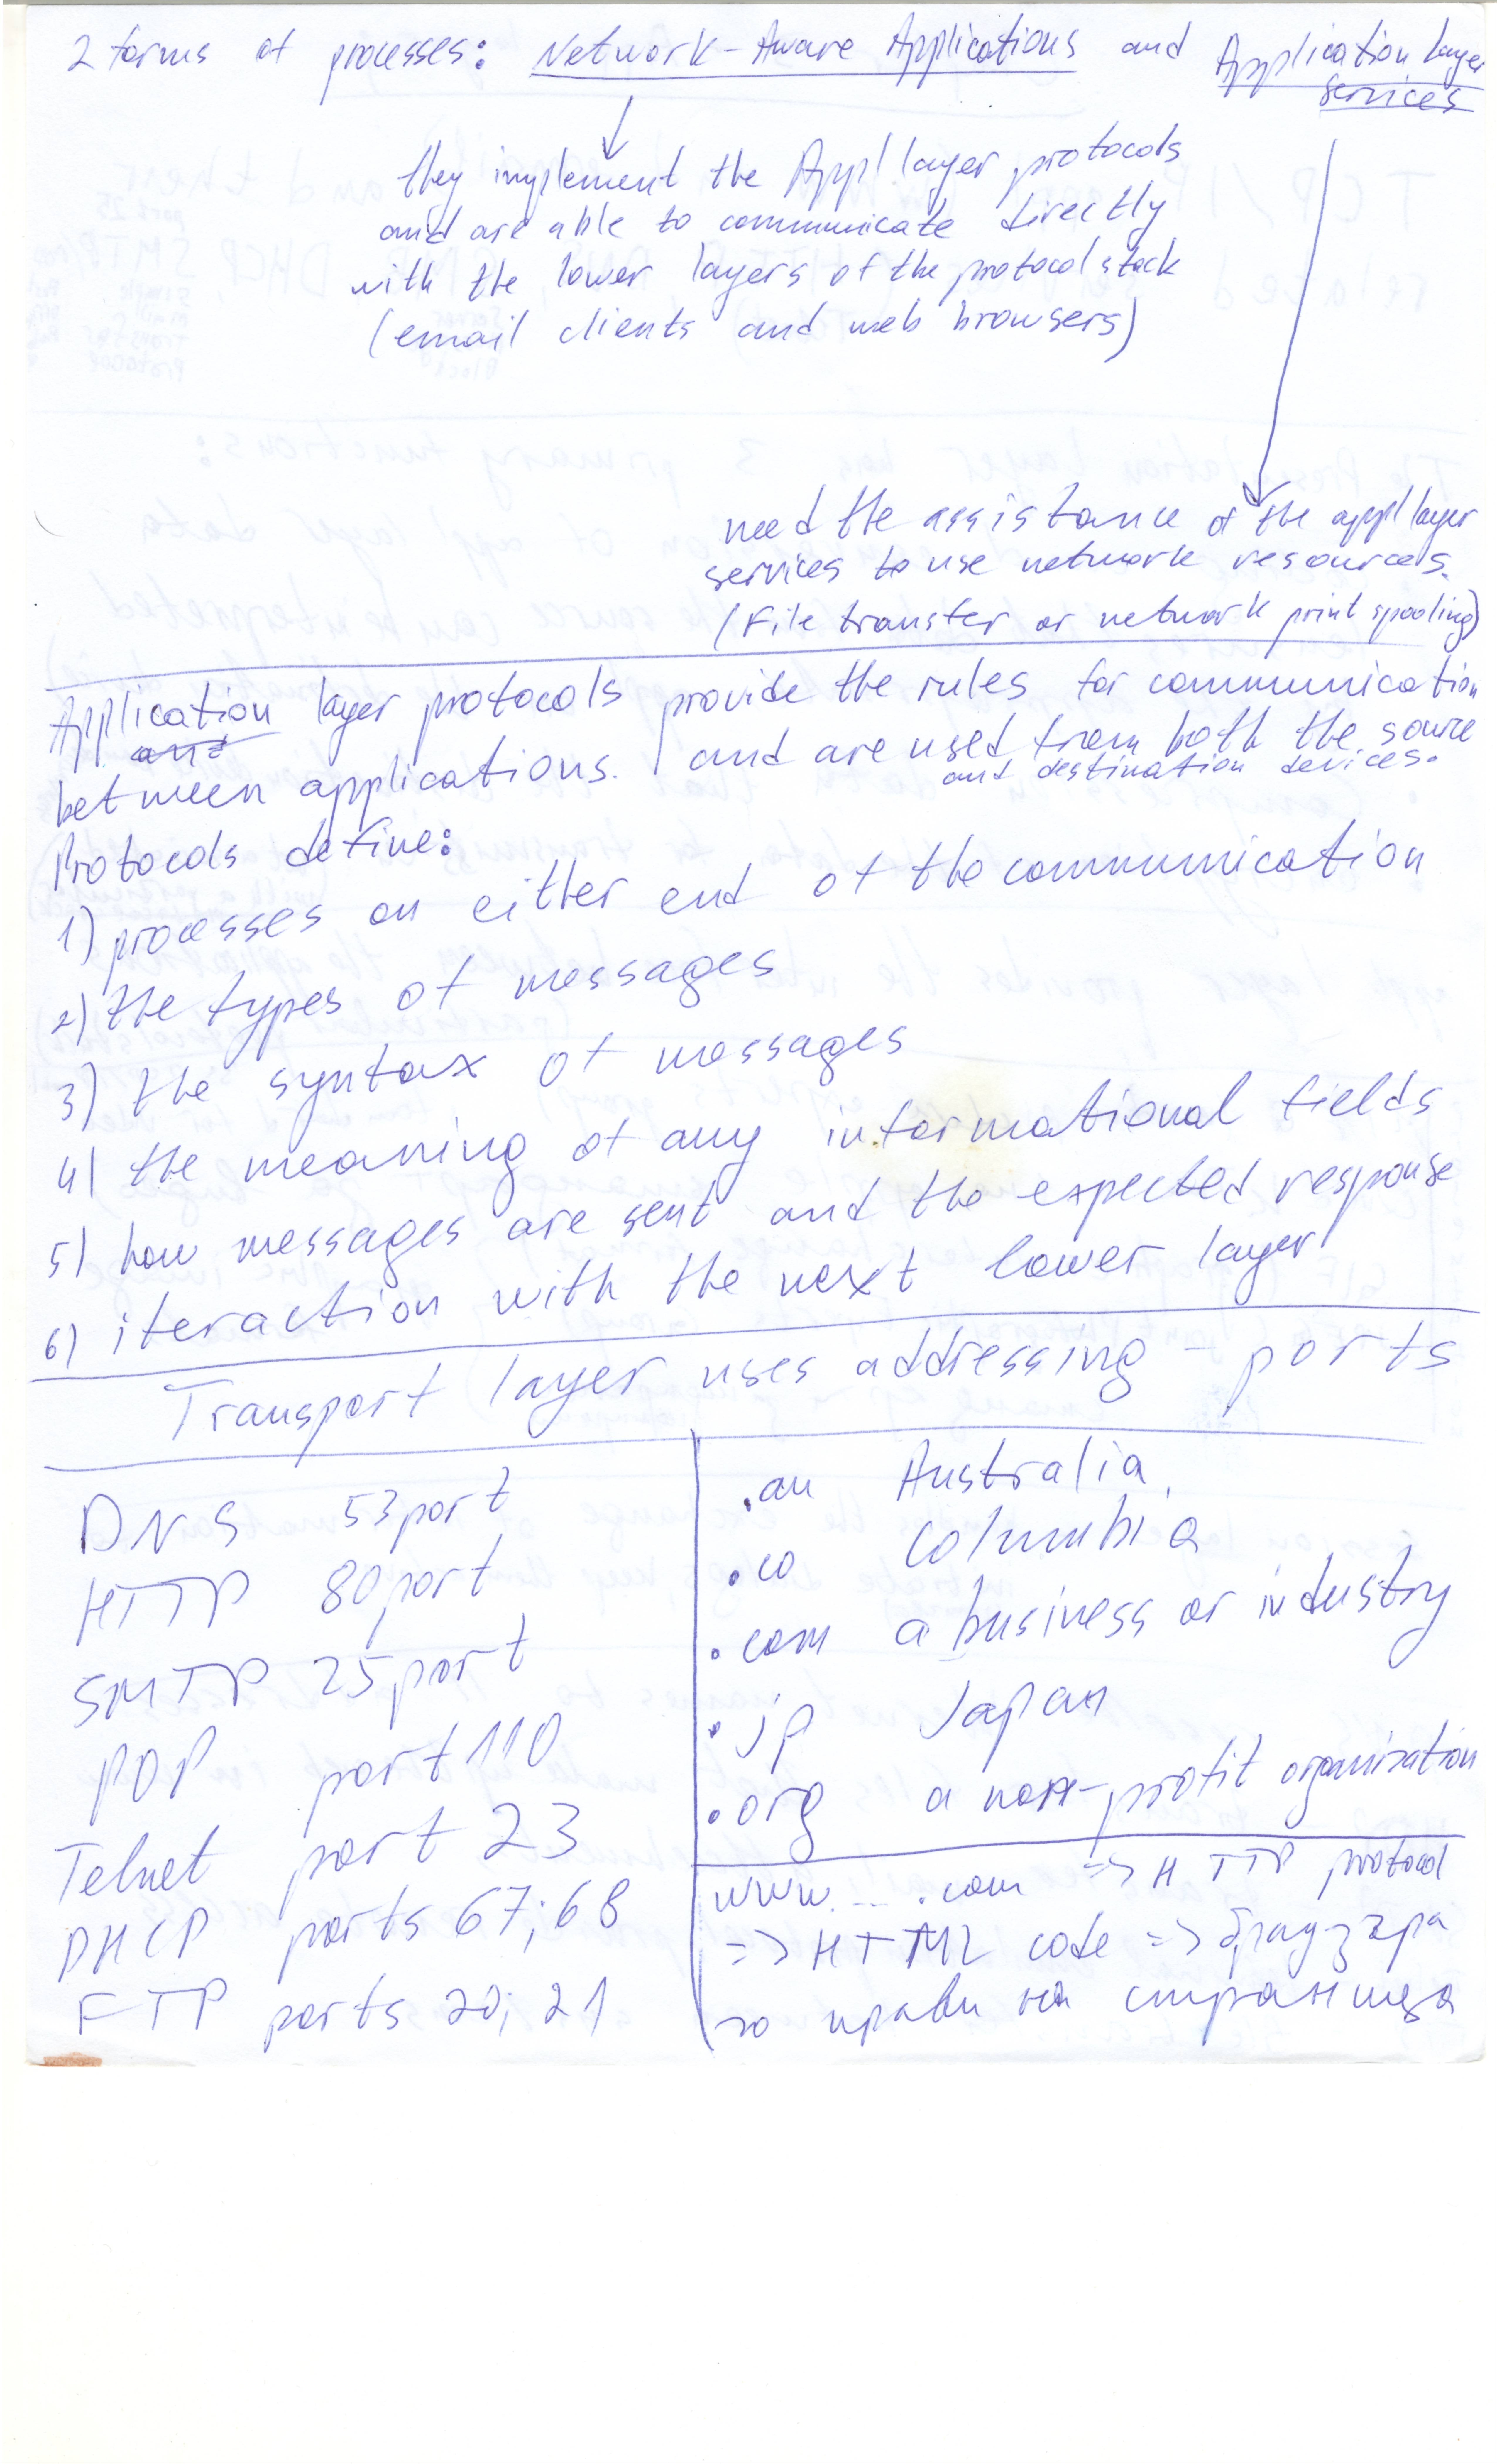 2 forms of processes: Network-Aware Applications and Application layer
services
they implement the Appl layer protocols
and are able to communicate directly
with the lower layers of the protocol stack
(email clients and web browsers)
need the assistance of the appl layer
services to use network resources.
(File transfer or network print spooling)
Application layer protocols provide the rules for communication
and
between applications. and are used from both the source
and destination devices.
Protocols define:
1) processes on either end of the communication
2) the types of messages
3) the syntax of messages
4) the meaning of any informational fields
5) how messages are sent and the expected response
6) iteraction with the next lower layer
Transport layer uses addressing - ports
DNS 53 port
HTTP 80 port
SMTP 25 port
POP port 110
Telnet port 23
DHCP ports 67; 68
FTP ports 20; 21
.au Australia
.co Columbia
.com a business or industry
.jp Japan
.org a non-profit organization
www. ... .com => HTTP protocol
=> HTML code => браузъра
го прави на страница